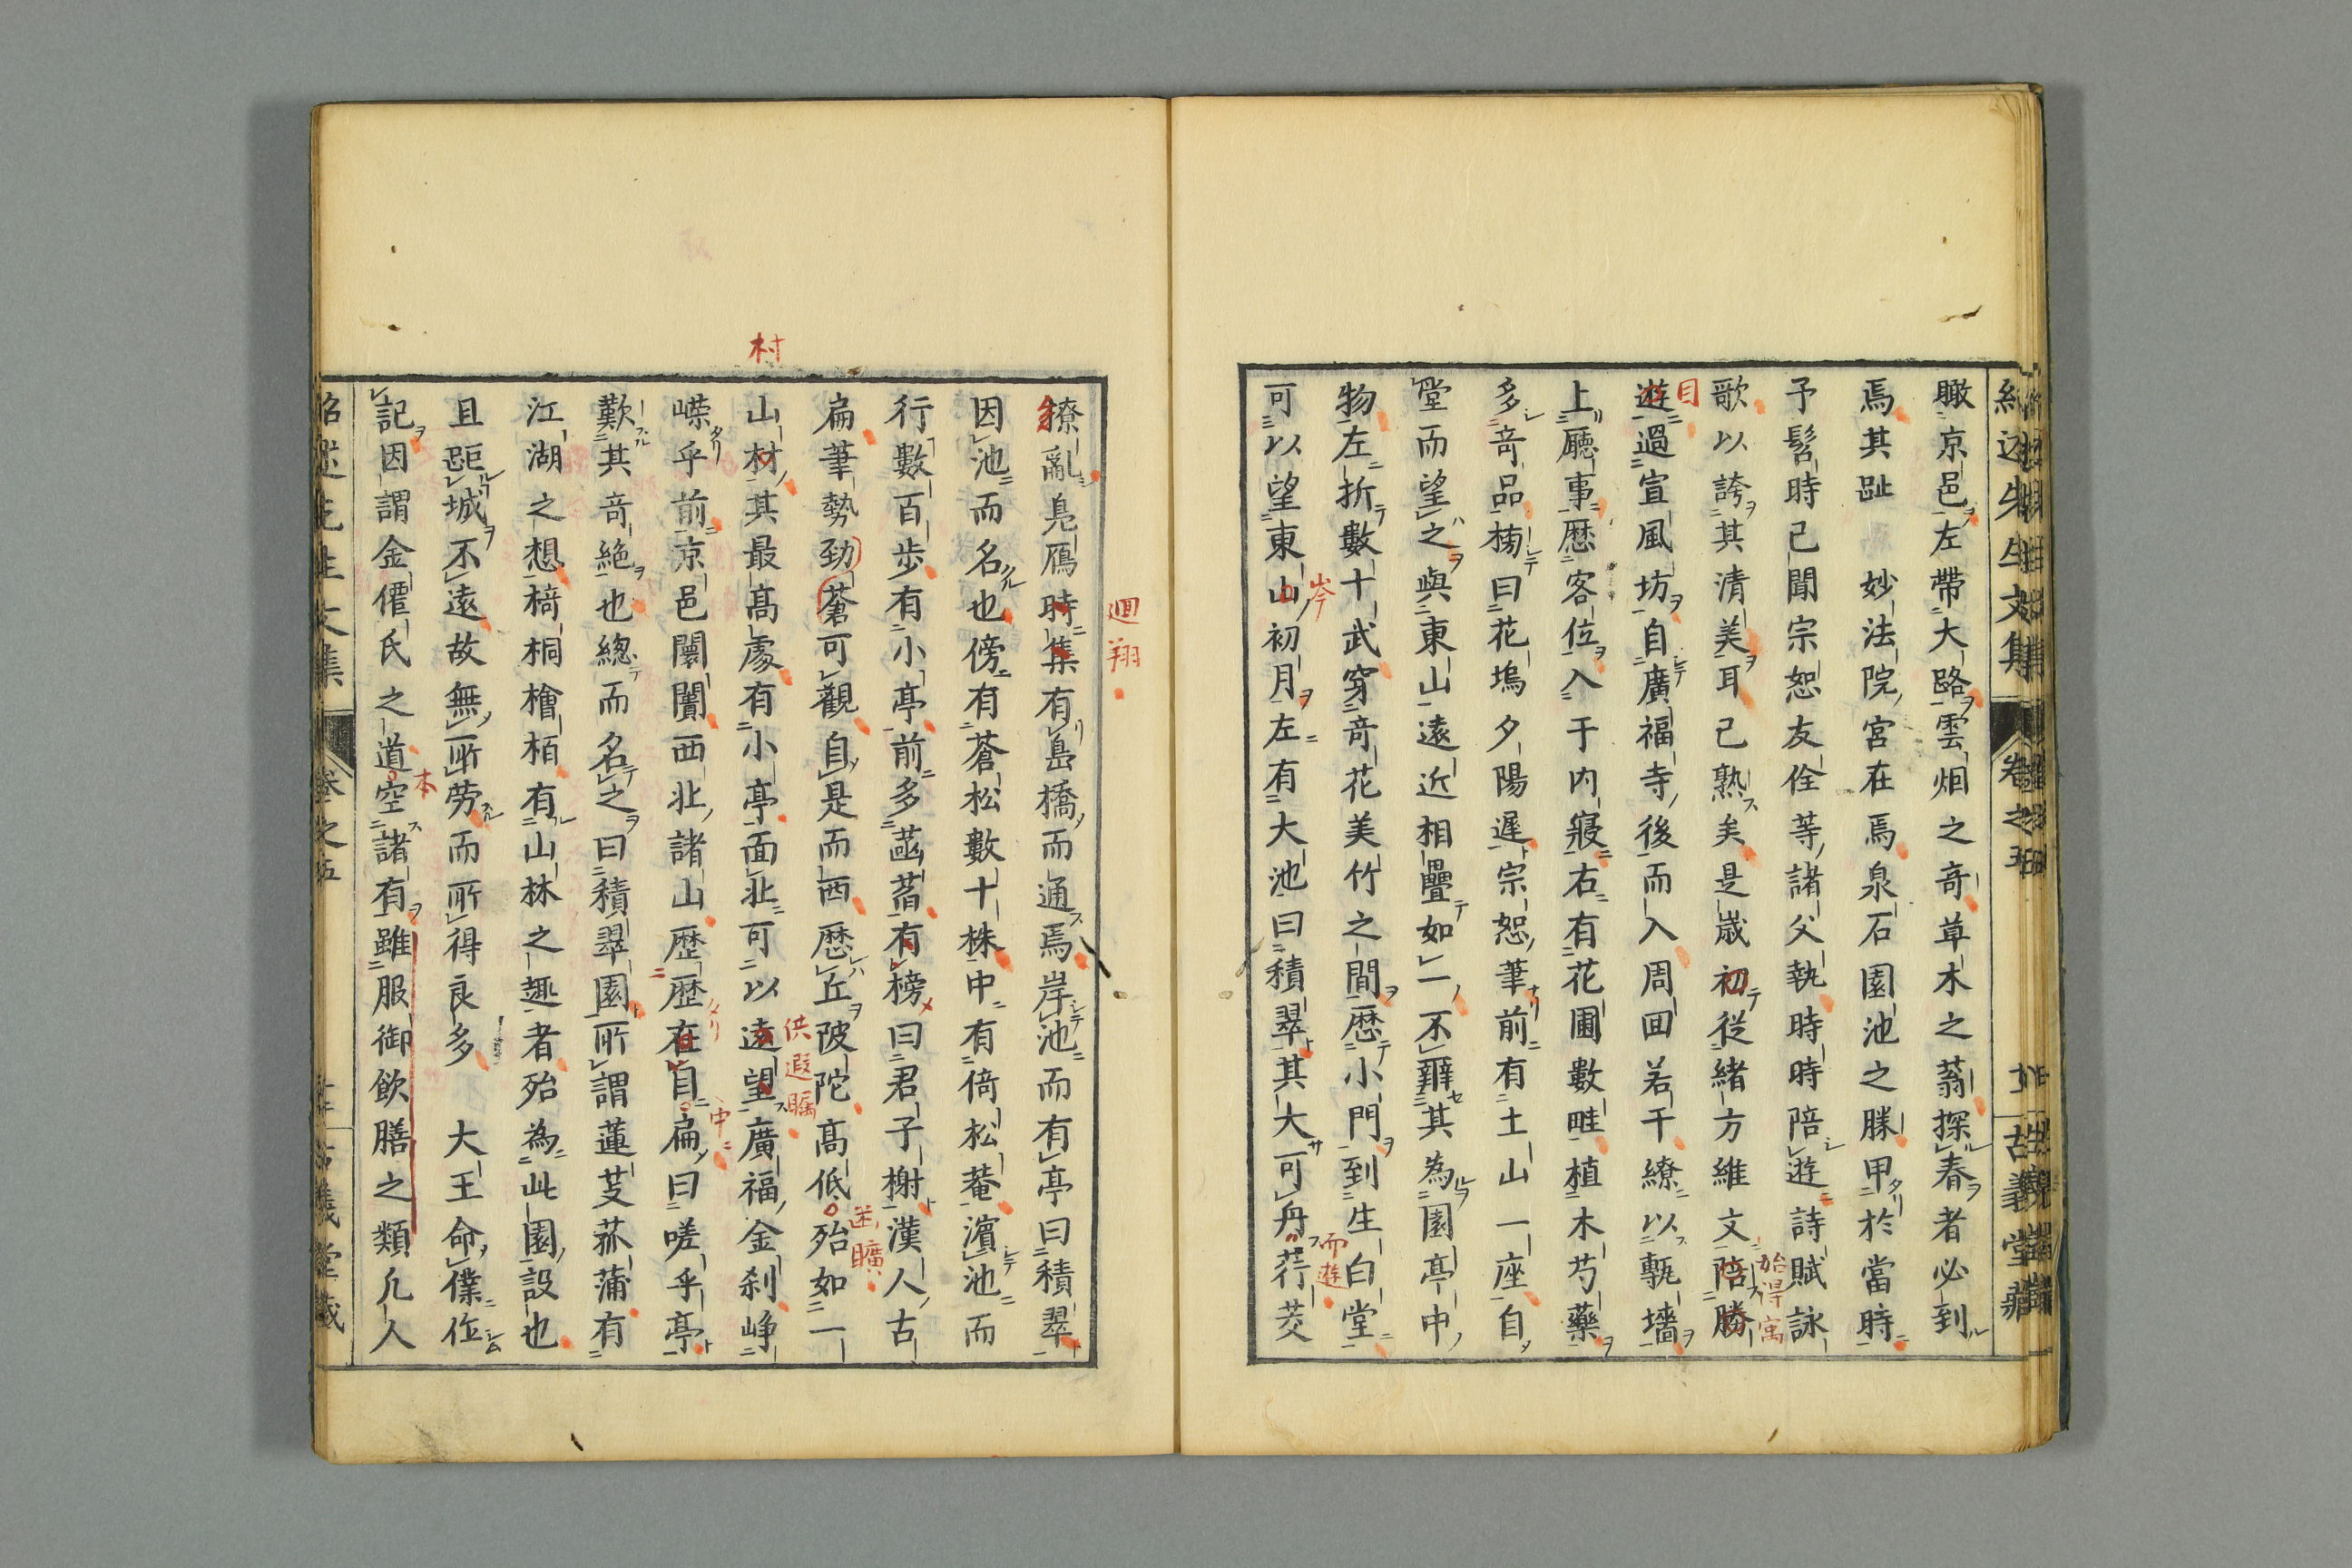 瞰京邑左帶大路雲烟之奇草木之蓊探春者必到
焉其趾　妙法院宮在焉泉石園池之勝甲於當時
予髫時已聞宗恕友佺等諸父執時時陪遊詩賦詠
歌以誇其清美耳已熟矣是歲初從緒方維文陪勝
始得寓
目
遊過宣風坊自廣福寺後而入周囬若干繚以甎墻
上廳事歷客位入于内寢右有花圃數畦植木芍藥
多奇品榜曰花塢夕陽遲宗恕筆前有土山一座自
堂而望之與東山遠近相疊如一不辨其為園亭中
物左折數十武穿奇花美竹之間歷小門到生白堂
岑
而遊
可以望東山初月左有大池曰積翠其大可舟荇茭
迴翔
撩亂鳧鴈時集有島橋而通焉岸池而有亭曰積翠
因池而名也傍有蒼松數十株中有倚松菴濵池而
行數百步有小亭前多菡萏有榜曰君子榭漢人古
扁筆勢勁蒼可觀自是而西歷丘陂陀高低殆如一
迷曠
村
山材其最高處有小亭面北可以遠望廣福金刹崢
供遐矚
嶸乎前京邑闤闠西北諸山歷歷在自扁曰嗟乎亭
中
歎其奇絶也總而名之曰積翠園所謂蓮芰菰蒲有
江湖之想椅桐檜栢有山林之趣者殆為此園設也
且距城不遠故無所勞而所得良多　大王命僕位
記因謂金僊氏之道空諸有雖服御飲膳之類凢人
本
紹述先生文集
卷之五
古義堂藏